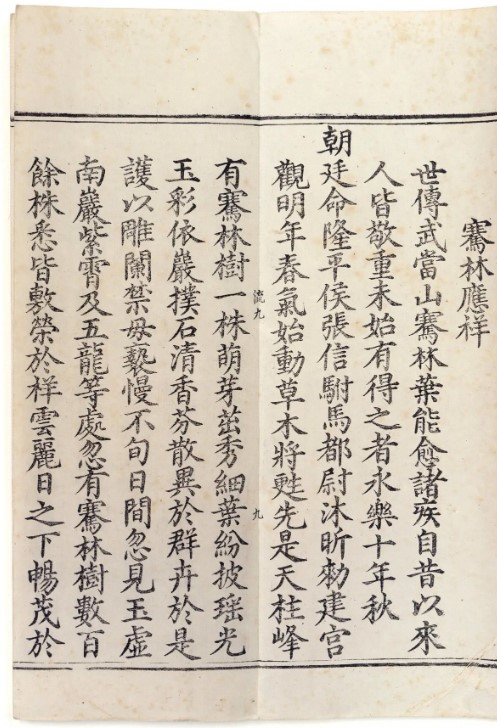 騫林應祥
世傳武當山騫林葉能愈諸疾自昔以來
人皆敬重未始有得之者永樂十年秋
朝廷命隆平侯張信駙馬都尉沐昕勑建宮
觀明年春氣始動草木將甦先是天柱峰
流九 九
有騫林樹一株萌芽茁秀細葉紛披瑶光
玉彩依巖撲石清香芬散異於群卉於是
護以雕闌禁毋褻慢不旬日間忽見玉虛
南巖紫霄及五龍等處忽有騫林樹數百
餘株悉皆敷榮於祥雲麗日之下暢茂於